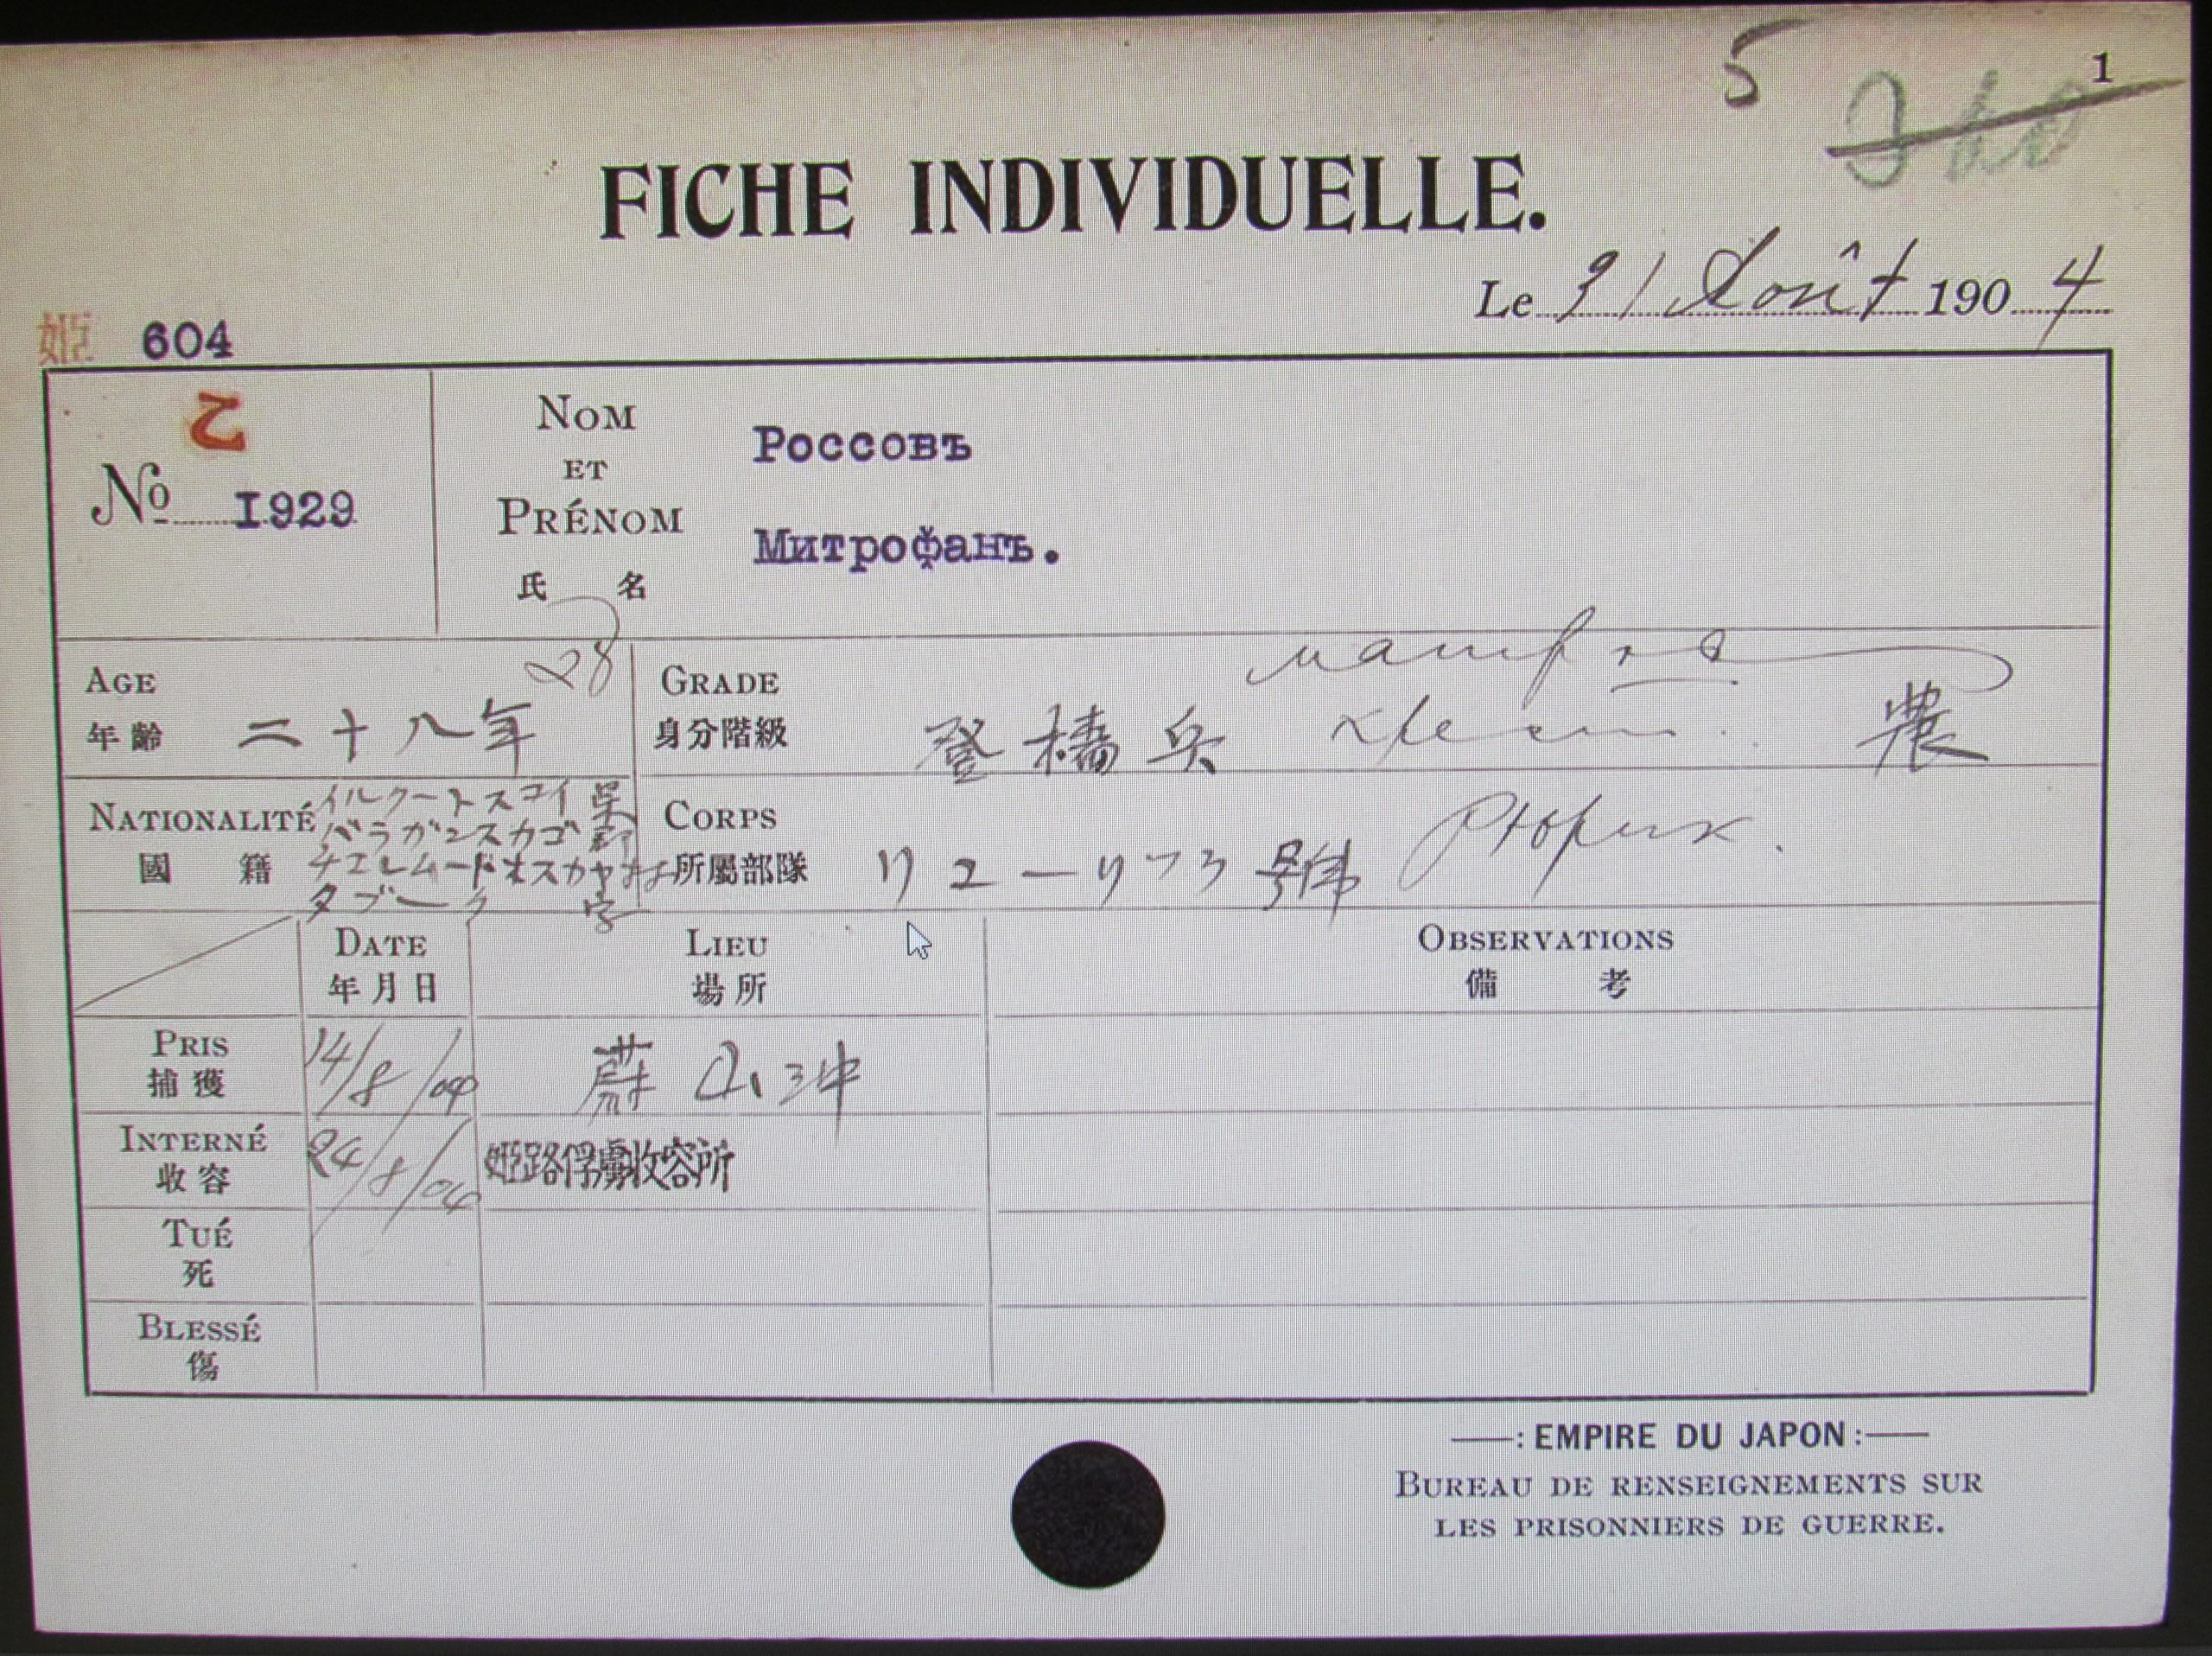 5
1
FICHE INDIVIDUELLE.
Le 31 Août 1904
姫 604
乙
No 1929
NOM
ET
PRÉNOM
氏 名
Россовъ
Митрофанъ.
AGE
年齡 二十八年 28
GRADE
身分階級 登檣兵 農
NATIONALITÉ
國籍
イルクートスコイ県
バラガンスカゴ郡
チエレムードオスカヤ村
タブーク 字
CORPS
所屬部隊 リユーリツク号
DATE
年月日
LIEU
場所
OBSERVATIONS
備考
PRIS
捕獲 14/8/04 蔚山沖
INTERNÉ
收容 24/8/04 姫路俘虜收容所
TUÉ
死
BLESSÉ
傷
——: EMPIRE DU JAPON :——
BUREAU DE RENSEIGNEMENTS SUR
LES PRISONNIERS DE GUERRE.